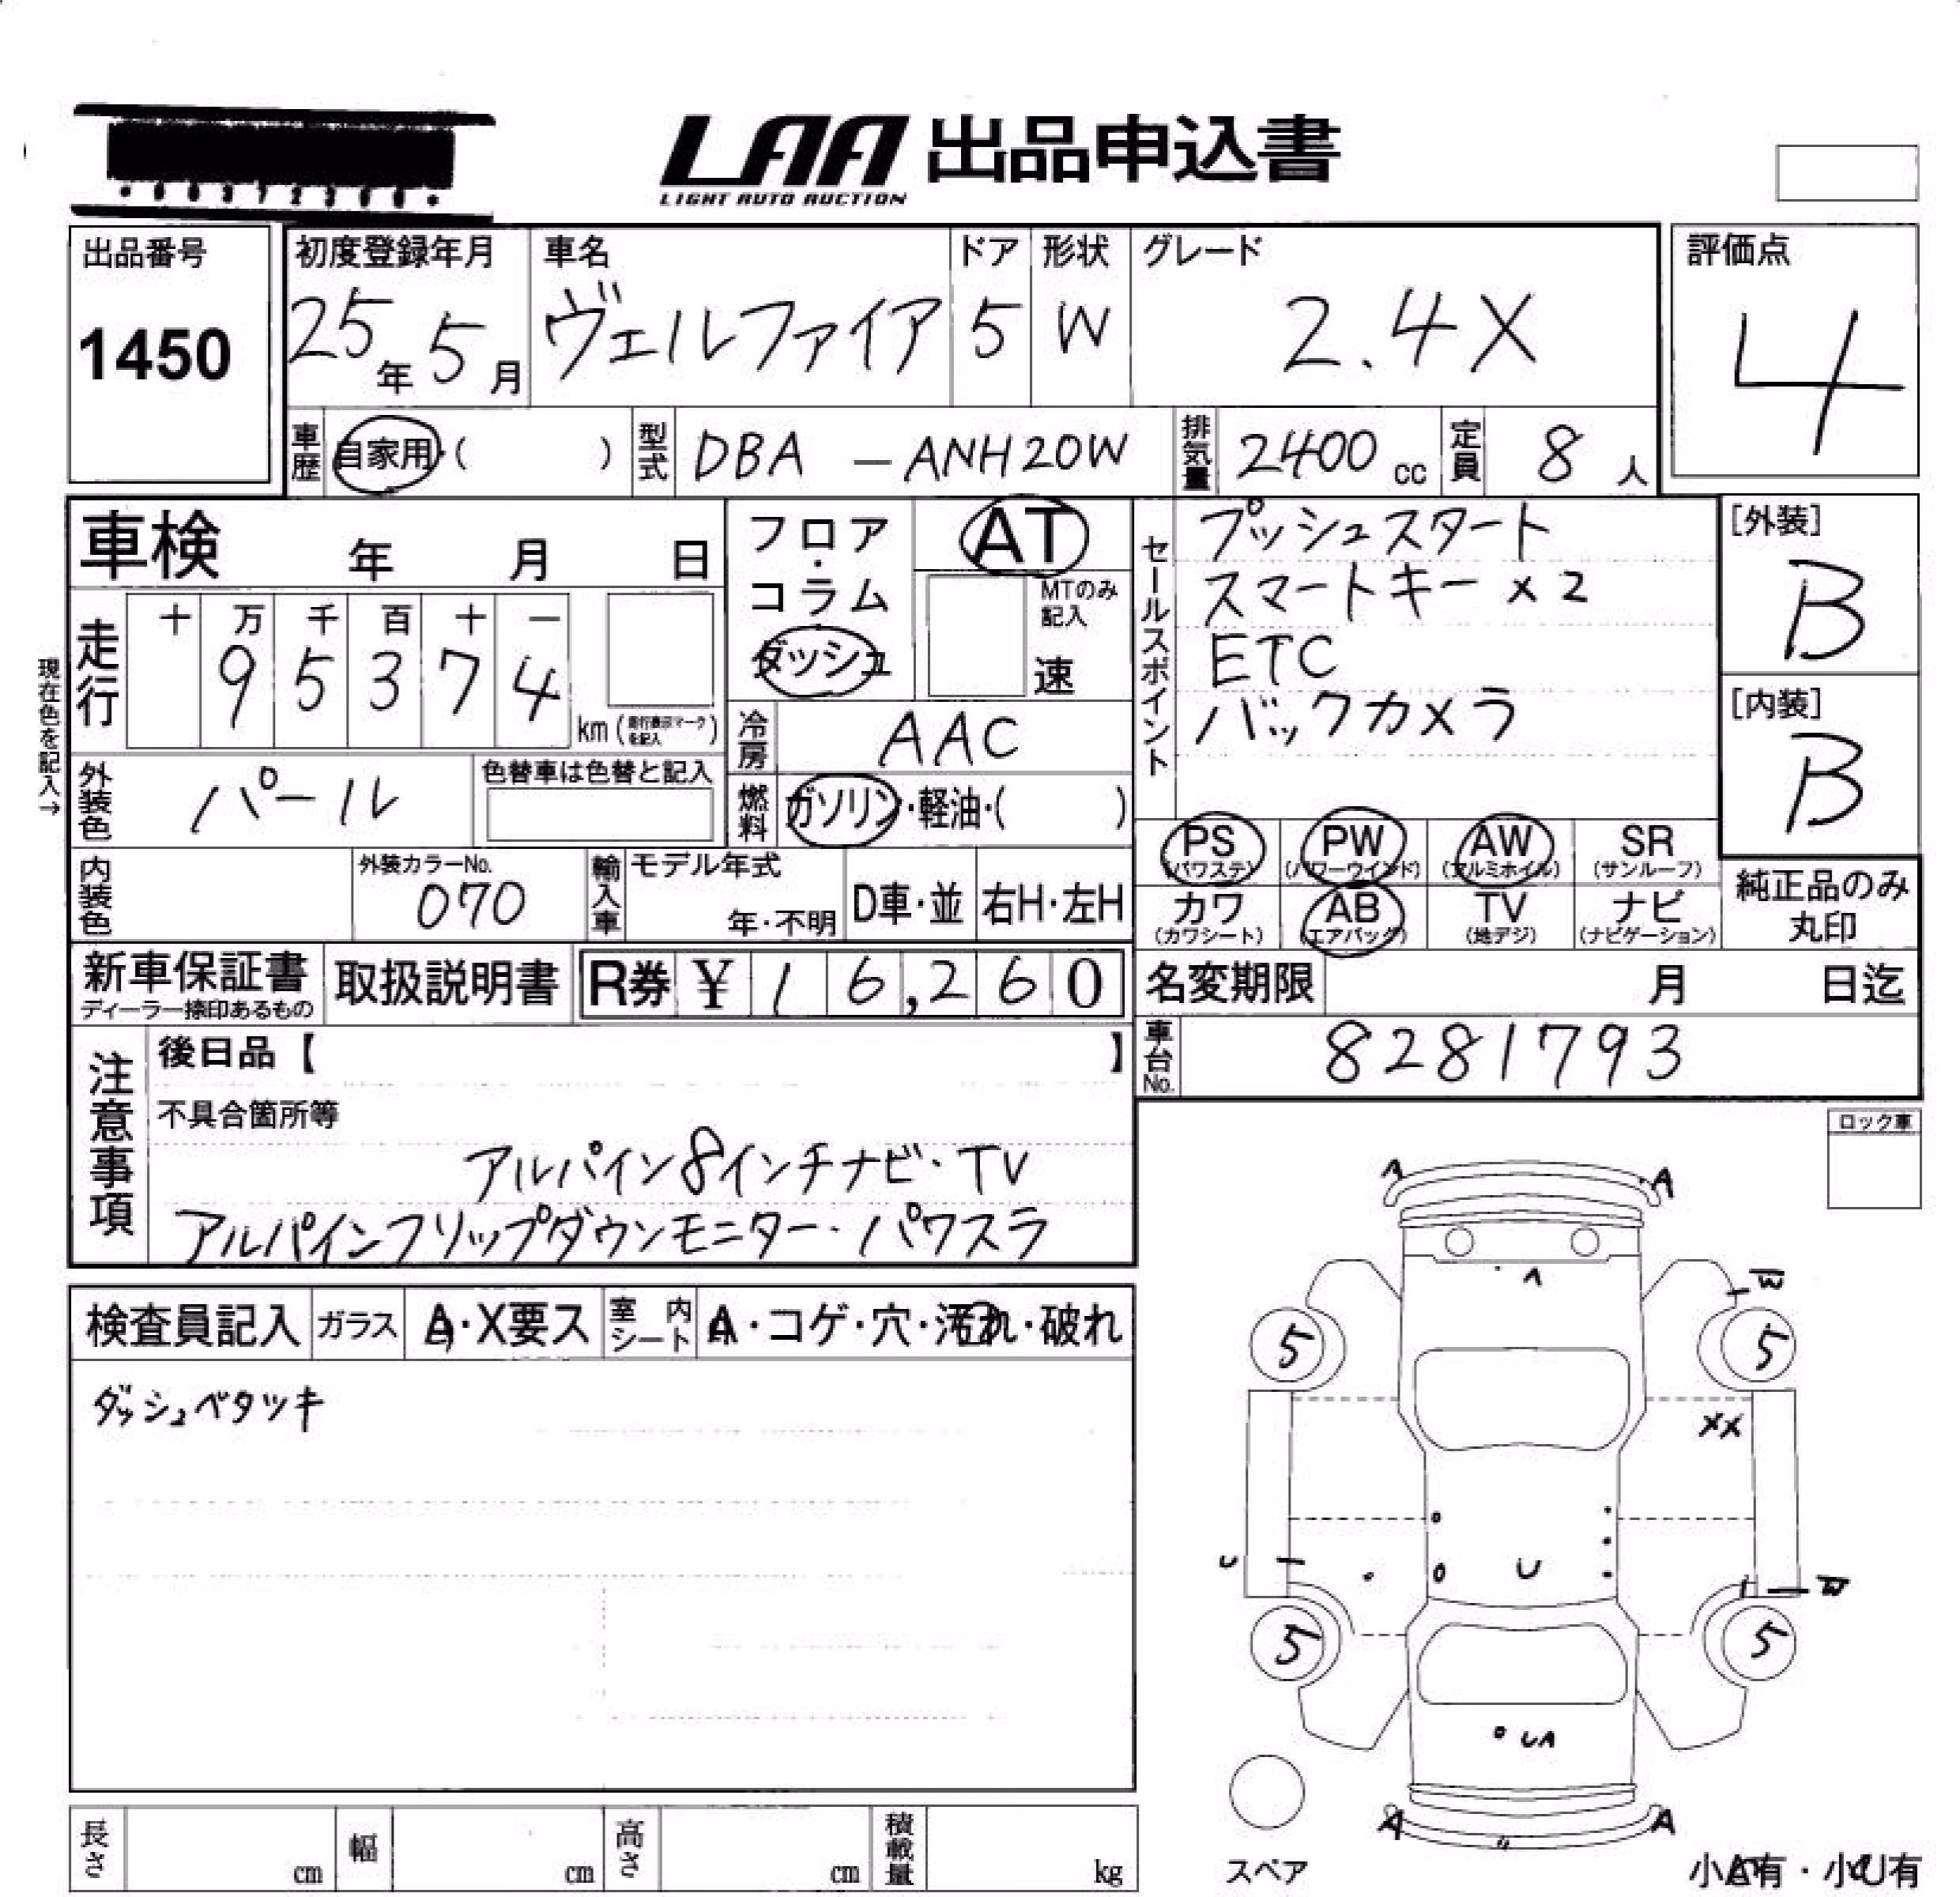 LAA 出品申込書
LIGHT AUTO AUCTION
出品番号
1450
初度登録年月
25年 5月
車名
ヴェルファイア
ドア
5
形状
W
グレード
2.4X
評価点
4
車歴 自家用・( )
型式 DBA - ANH20W
排気量 2400 cc
定員 8 人
車検 年 月 日
フロア・コラム・ダッシュ
AT
MTのみ記入
速
セールスポイント
プッシュスタート
スマートキー×2
ETC
バックカメラ
[外装]
B
[内装]
B
現在色を記入→
走行
十 万 千 百 十 一
9 5 3 7 4
km (走行表示マークを記入)
冷房 AAC
外装色 パール
色替車は色替と記入
燃料 ガソリン・軽油・( )
PS (パワステ)
PW (パワーウインド)
AW (アルミホイル)
SR (サンルーフ)
カワ (カワシート)
AB (エアバッグ)
TV (地デジ)
ナビ (ナビゲーション)
純正品のみ
丸印
内装色
外装カラーNo.
070
輸入車
モデル年式
年・不明
D車・並
右H・左H
新車保証書
ディーラー捺印あるもの
取扱説明書
R券 ¥ 16,260
名変期限 月 日迄
車台No. 8281793
注意事項
後日品【 】
不具合箇所等
アルパイン8インチナビ・TV
アルパインフリップダウンモニター・パワスラ
ロック車
検査員記入
ガラス A・X要ス
室内シート A・コゲ・穴・汚れ・破れ
ダッシュベタツキ
A A
A
W
5 5
XX
U U W
5 5
UA
A A
スペア
小A有・小U有
長さ cm
幅 cm
高さ cm
積載量 kg